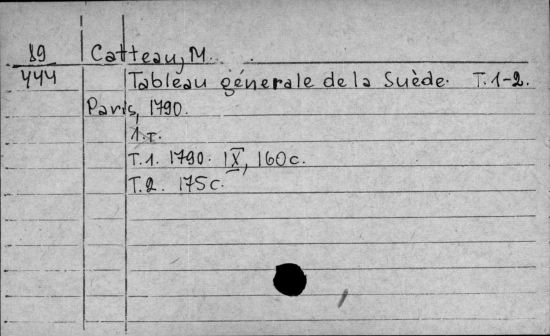 19 Catteau, M.
444 Tableau générale de la Suède. T. 1-2.
Paris, 1790.
1.т.
T.1. 1790. IX, 160c.
T.2. 175c.